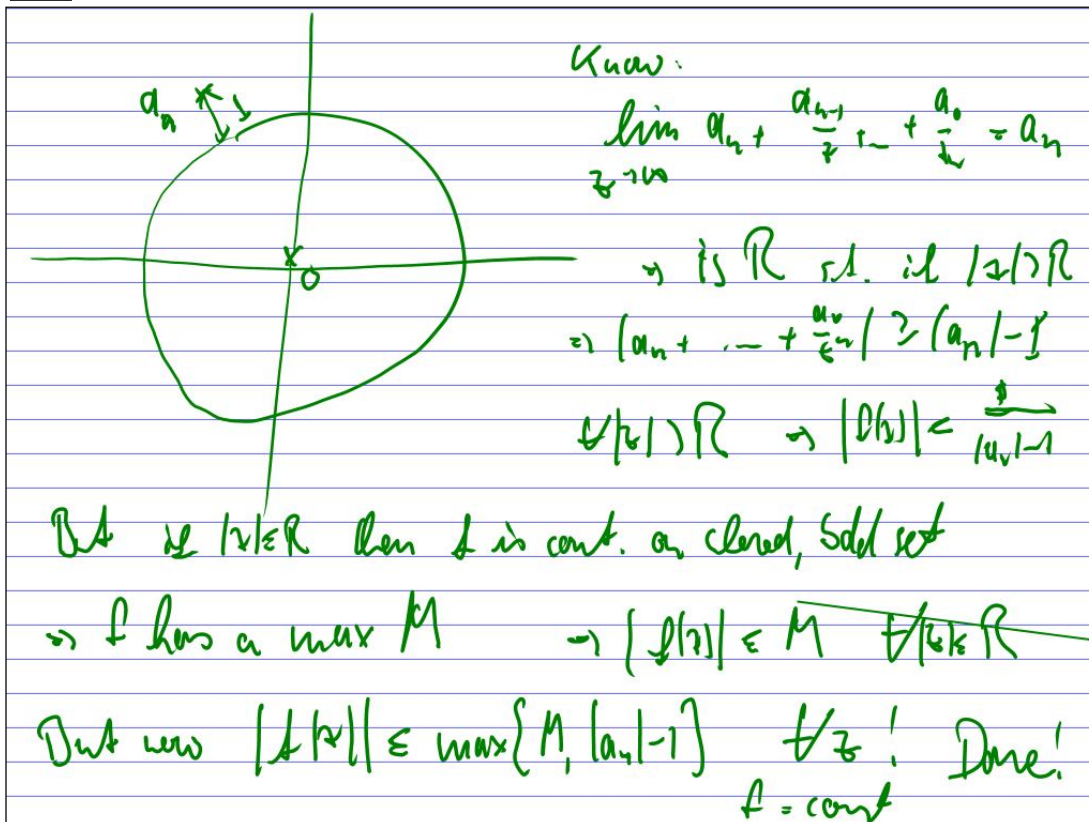 Know:
lim a_n + a_{n-1}/z + ... + a_0/z^n = a_n
z→∞
a_n 1
⇒ is R s.t. if |z|>R
0
⇒ |a_n + ... + a_0/z^n| ≥ |a_n|-1
∀|z|>R ⇒ |f(z)| < 1/(|a_n|-1)
But if |z|≤R then f is cont. on closed, bdd set
⇒ f has a max M ⇒ |f(z)| ≤ M ∀|z|≤R
But now |f(z)| ≤ max{M, |a_n|-1} ∀z! Done!
f = const